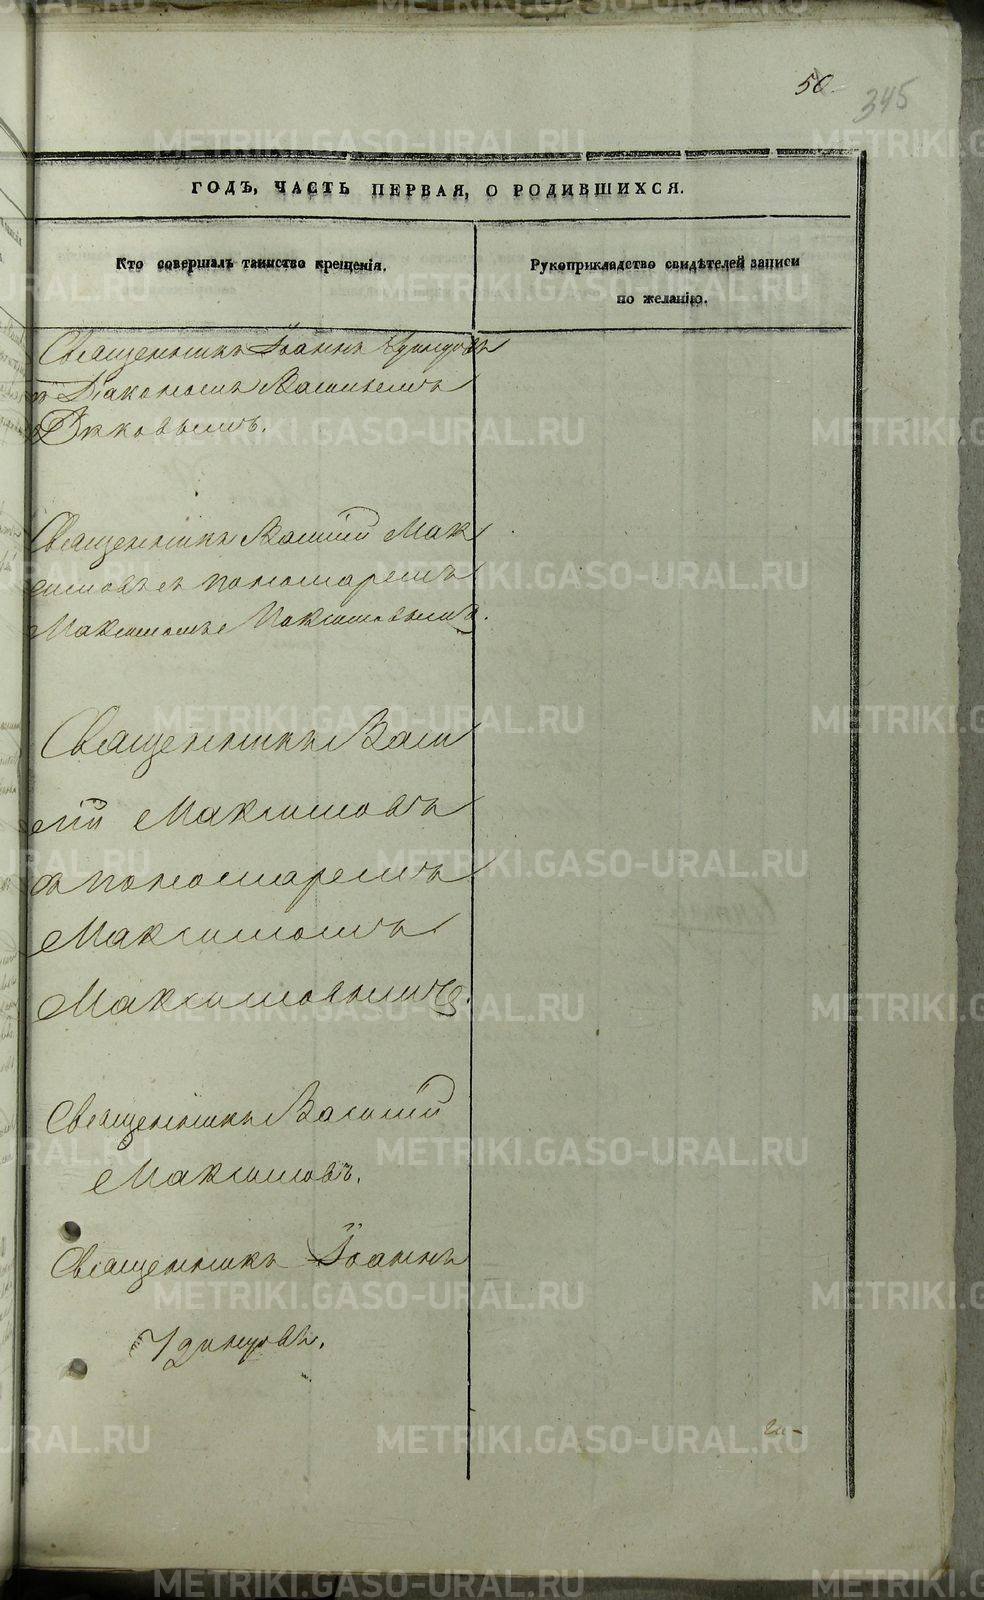 50.
345
ГОДЪ, ЧАСТЬ ПЕРВАЯ, О РОДИВШИХСЯ.
Кто совершалъ таинство крещенія.
Рукоприкладство свидѣтелей записи
по желанію.
Священникъ Іоаннъ Удинцовъ
съ Діакономъ Васильемъ
Священникъ Василій Мак
симовъ съ пономаремъ
Максимомъ Максимовымъ.
Священникъ Васи
лій Максимовъ
съ пономаремъ
Максимомъ
Максимовымъ.
Священникъ Василій
Максимовъ.
Священникъ Іоаннъ
Удинцовъ.
METRIKI.GASO-URAL.RU